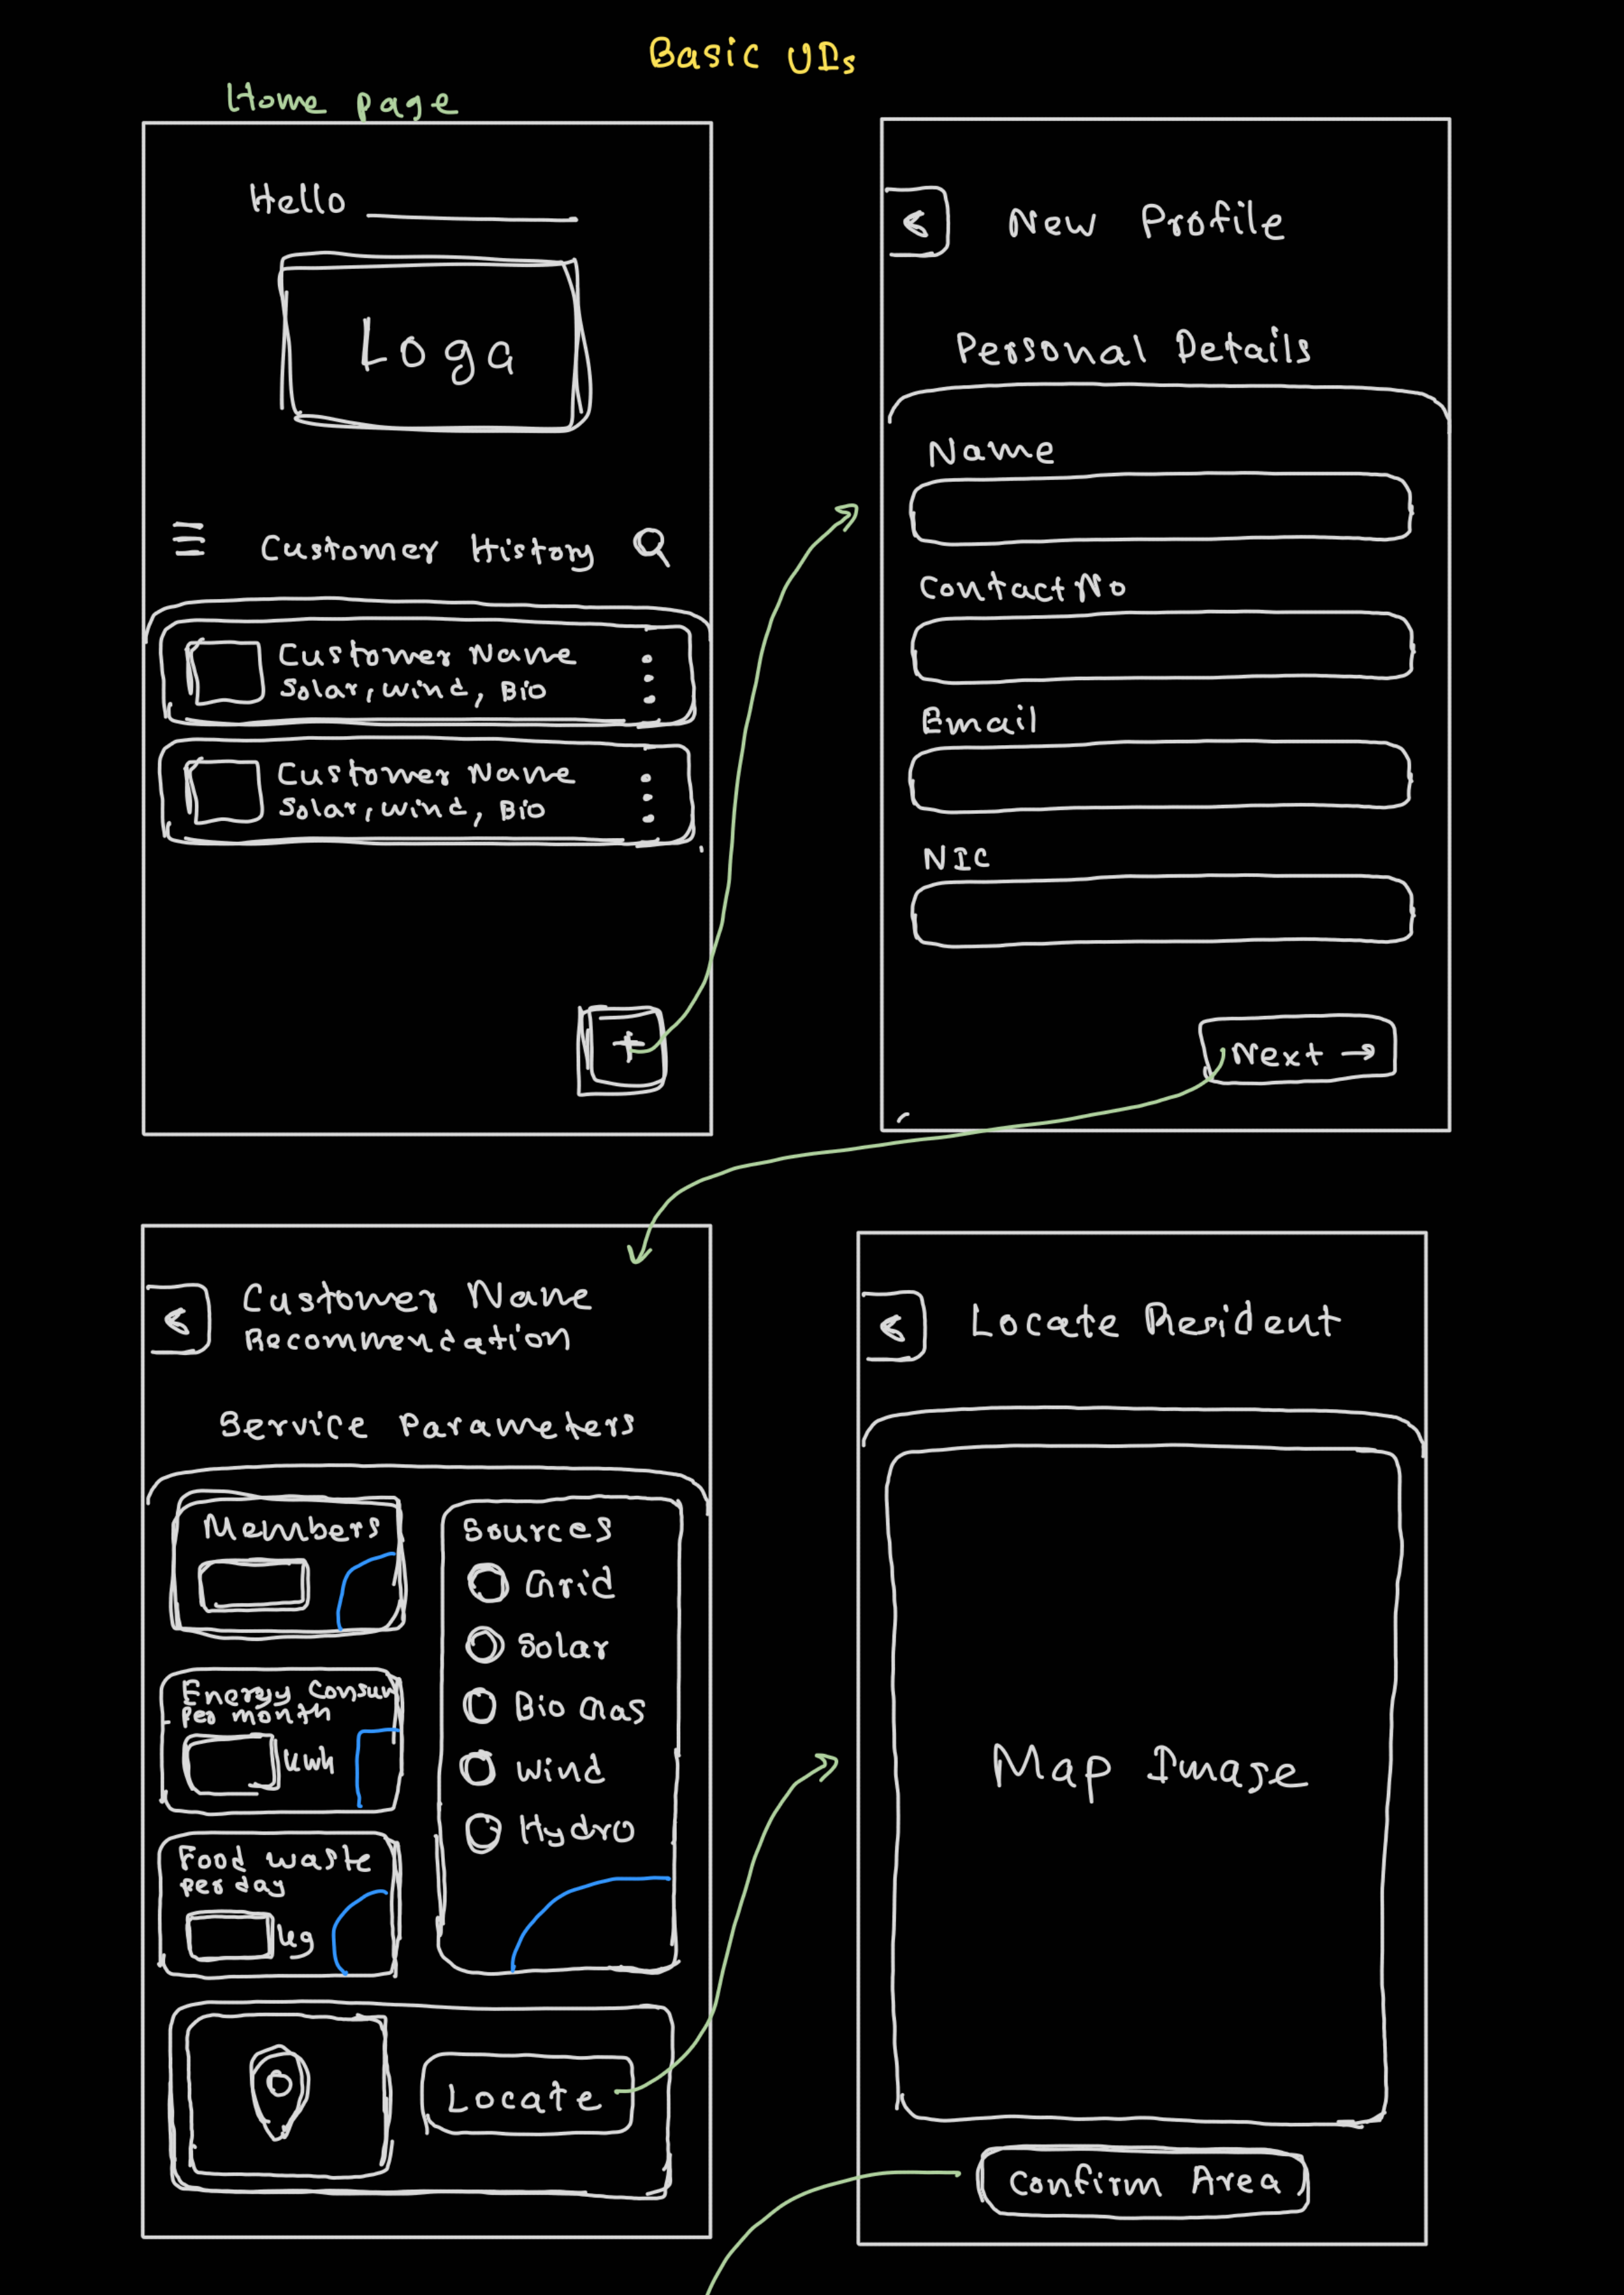 Basic UIs
Home page
Hello
Loga
Customer History
Customer Name
Solar, Wind, Bio
Customer Name
Solar, Wind, Bio
+
New Profile
Personal Details
Name
Contact No
Email
NIC
Next →
Customer Name
Recommendation
Service Parameters
Members
Energy Consum
Per month
kwh
Food waste
per day
kg
Sources
Grid
Solar
Bio Gas
Wind
Hydro
Locate
Locate Resident
Map Image
Confirm Area